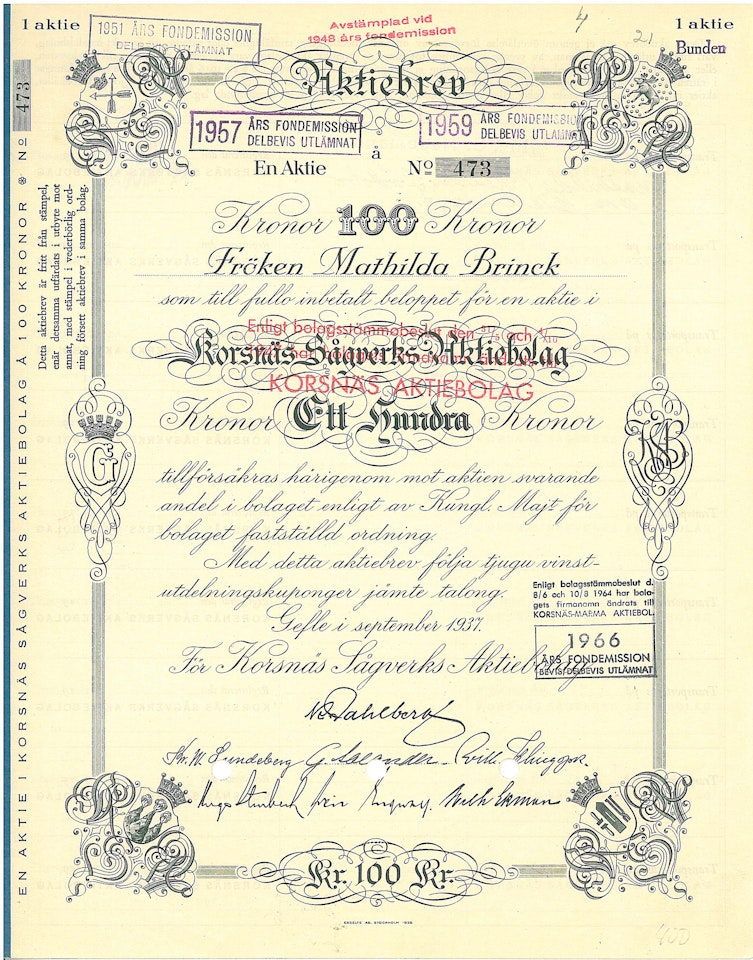 1 aktie
1951 ÅRS FONDEMISSION
DELBEVIS UTLÄMNAT
Avstämplad vid
1948 års fondemission
4
21
1 aktie
Bunden
Aktiebrev
1957 ÅRS FONDEMISSION
DELBEVIS UTLÄMNAT
1959 ÅRS FONDEMISSION
DELBEVIS UTLÄMNAT
En Aktie
å
No 473
Kronor 100 Kronor
Fröken Mathilda Brinck
som till fullo inbetalt beloppet för en aktie i
Enligt bolagsstämmobeslut den och
Korsnäs Sågverks Aktiebolag
KORSNÄS AKTIEBOLAG
Kronor Ett Hundra Kronor
G
KSAB
tillförsäkras härigenom mot aktien svarande
andel i bolaget enligt av Kungl. Majt för
bolaget fastställd ordning.
Med detta aktiebrev följa tjugu vinst-
utdelningskuponger jämte talong.
Gefle i september 1937.
För Korsnäs Sågverks Aktiebolag
Enligt bolagsstämmobeslut d.
8/6 och 10/8 1964 har bola-
gets firmanamn ändrats till
KORSNÄS-MARMA AKTIEBOL.
1966
ÅRS FONDEMISSION
BEVIS/DELBEVIS UTLÄMNAT
Kr. 100 Kr.
EN AKTIE I KORSNÄS SÅGVERKS AKTIEBOLAG Å 100 KRONOR No 473
Detta aktiebrev är fritt från stämpel,
enär detsamma utfärdats i utbyte mot
annat, med stämpel i vederbörlig ord-
ning försett aktiebrev i samma bolag.